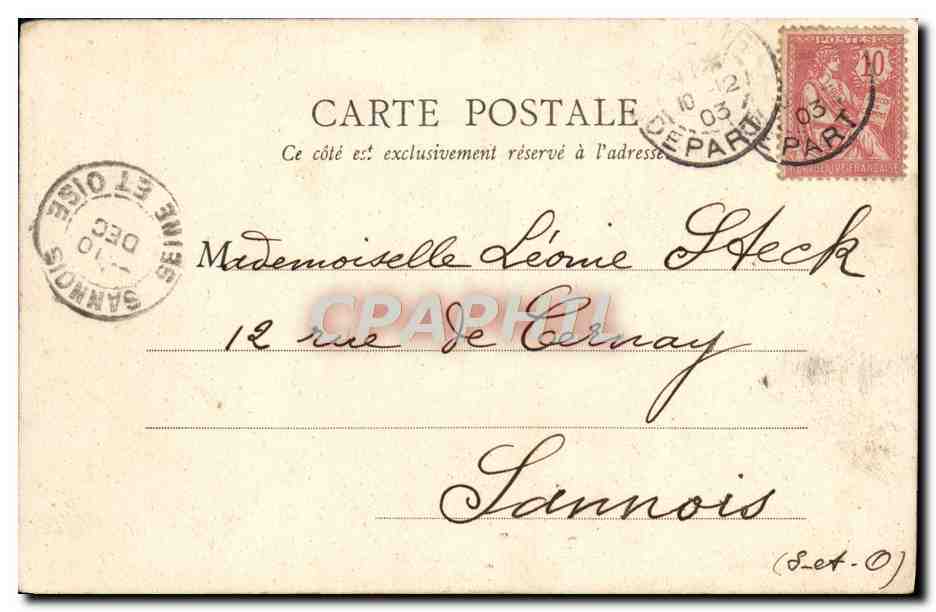 POSTES
10
RÉPUBLIQUE FRANÇAISE
CARTE POSTALE
10 -12
03
DEPART
03
PART
Ce côté est exclusivement réservé à l'adresse.
SANNOIS
SEINE ET OISE
10
DEC
Mademoiselle Léonie Steck
CPAPHIL
12 rue de Cernay
Sannois
(S-et-O)